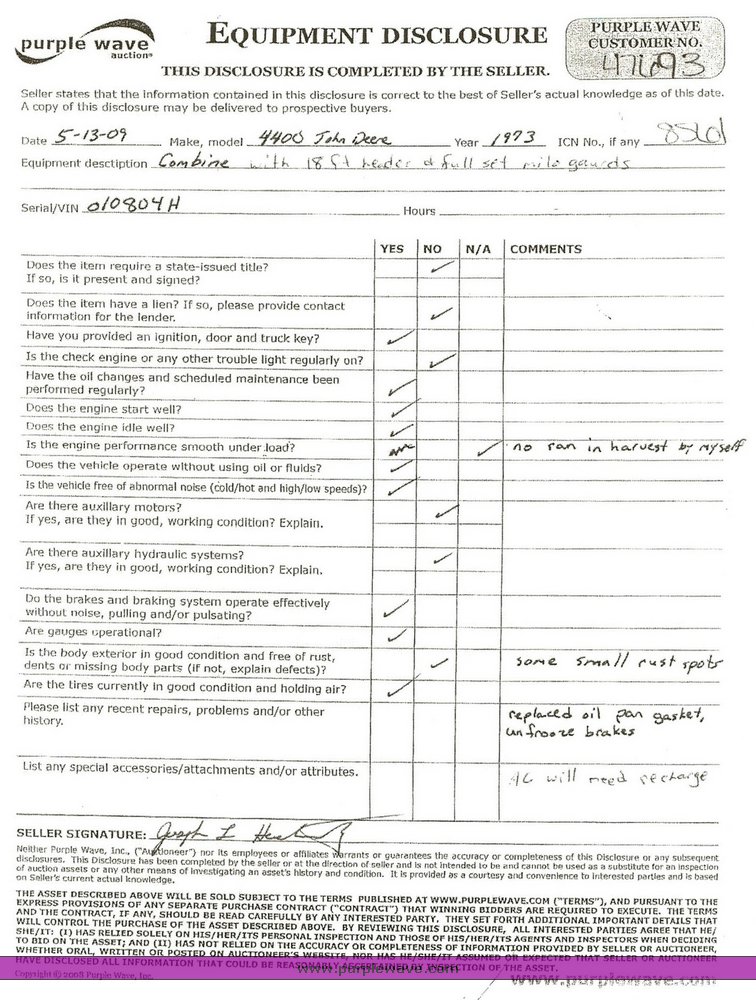 purple wave
auction®
EQUIPMENT DISCLOSURE
PURPLE WAVE
CUSTOMER NO.
THIS DISCLOSURE IS COMPLETED BY THE SELLER.
Seller states that the information contained in this disclosure is correct to the best of Seller's actual knowledge as of this date.
A copy of this disclosure may be delivered to prospective buyers.
Date 5-13-09 Make, model 4400 John Deere Year 1973 ICN No., if any
Equipment desctiption Combine with 18 ft header & full set milo gaurds
Serial/VIN 010804H Hours
YES NO N/A COMMENTS
Does the item require a state-issued title?
If so, is it present and signed?
Does the item have a lien? If so, please provide contact
information for the lender.
Have you provided an ignition, door and truck key?
Is the check engine or any other trouble light regularly on?
Have the oil changes and scheduled maintenance been
performed regularly?
Does the engine start well?
Does the engine idle well?
Is the engine performance smooth under load? no ran in harvest by myself
Does the vehicle operate without using oil or fluids?
Is the vehicle free of abnormal noise (cold/hot and high/low speeds)?
Are there auxillary motors?
If yes, are they in good, working condition? Explain.
Are there auxillary hydraulic systems?
If yes, are they in good, working condition? Explain.
Do the brakes and braking system operate effectively
without noise, pulling and/or pulsating?
Are gauges operational?
Is the body exterior in good condition and free of rust,
dents or missing body parts (if not, explain defects)? some small rust spots
Are the tires currently in good condition and holding air?
Please list any recent repairs, problems and/or other
history.
replaced oil pan gasket,
unfrooze brakes
List any special accessories/attachments and/or attributes.
AC will need recharge
SELLER SIGNATURE: Joseph L
Neither Purple Wave, Inc., ("Auctioneer") nor its employees or affiliates warrants or guarantees the accuracy or completeness of this Disclosure or any subsequent
disclosures. This Disclosure has been completed by the seller or at the direction of seller and is not intended to and cannot be used as a substitute for an inspection
of auction assets or any other means of investigating an asset's history and condition. It is provided as a courtesy and convenience to interested parties and is based
on Seller's current actual knowledge.
THE ASSET DESCRIBED ABOVE WILL BE SOLD SUBJECT TO THE TERMS PUBLISHED AT WWW.PURPLEWAVE.COM ("TERMS"), AND PURSUANT TO THE
EXPRESS PROVISIONS OF ANY SEPARATE PURCHASE CONTRACT ("CONTRACT") THAT WINNING BIDDERS ARE REQUIRED TO EXECUTE. THE TERMS
AND THE CONTRACT, IF ANY, SHOULD BE READ CAREFULLY BY ANY INTERESTED PARTY. THEY SET FORTH ADDITIONAL IMPORTANT DETAILS THAT
WILL CONTROL THE PURCHASE OF THE ASSET DESCRIBED ABOVE. BY REVIEWING THIS DISCLOSURE, ALL INTERESTED PARTIES AGREE THAT HE/
SHE/IT: (I) HAS RELIED SOLELY ON HIS/HER/ITS PERSONAL INSPECTION AND THOSE OF HIS/HER/ITS AGENTS AND INSPECTORS WHEN DECIDING
TO BID ON THE ASSET; AND (II) HAS NOT RELIED ON THE ACCURACY OR COMPLETENESS OF INFORMATION PROVIDED BY SELLER OR AUCTIONEER,
WHETHER ORAL, WRITTEN OR POSTED ON AUCTIONEER'S WEBSITE, NOR HAS HE/SHE/IT ASSUMED OR EXPECTED THAT SELLER OR AUCTIONEER
HAVE DISCLOSED ALL INFORMATION THAT COULD BE REASONABLY ASCERTAINED BY INSPECTION OF THE ASSET.
www.purplewave.com
Copyright © 2008 Purple Wave, Inc.
www.purplewave.com